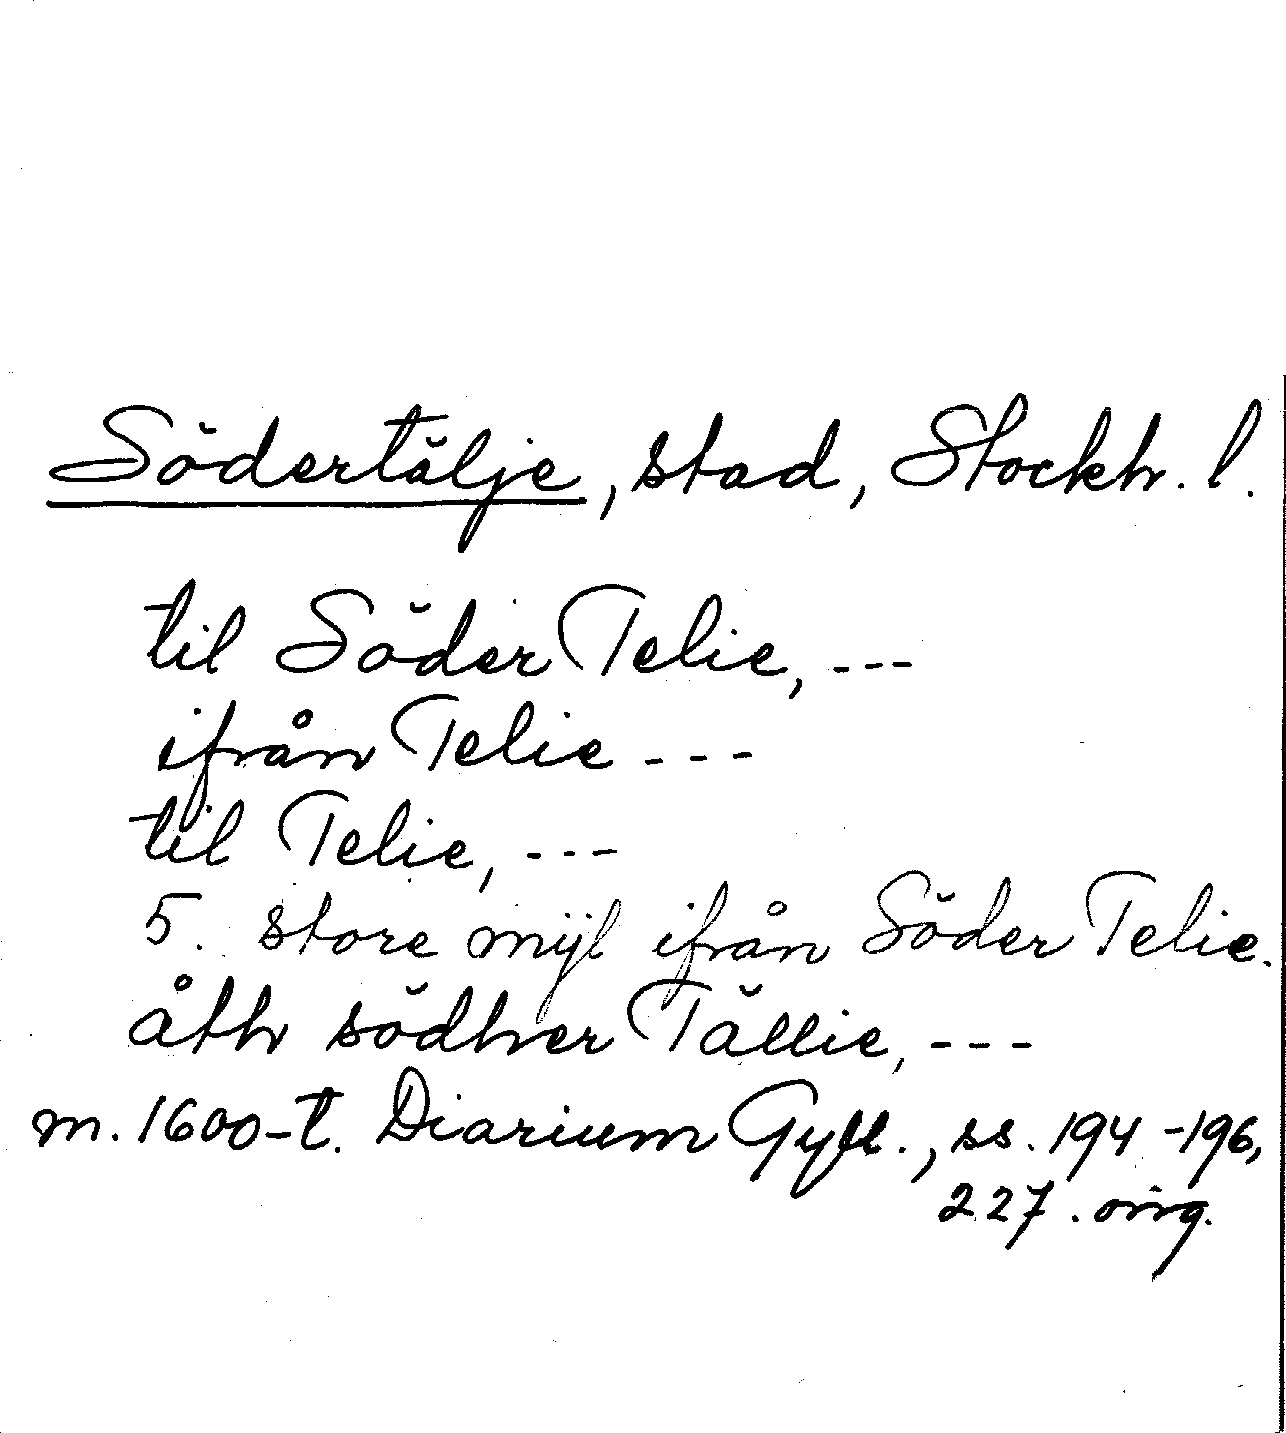 Södertälje, stad, Stockh. l.
til Söder Telie, ---
ifrån Telie ---
til Telie, ---
5. store mÿl ifrån Söder Telie.
åth södher Tällie, ---
m. 1600-t. Diarium Gyll., ss. 194-196,
227. orig.